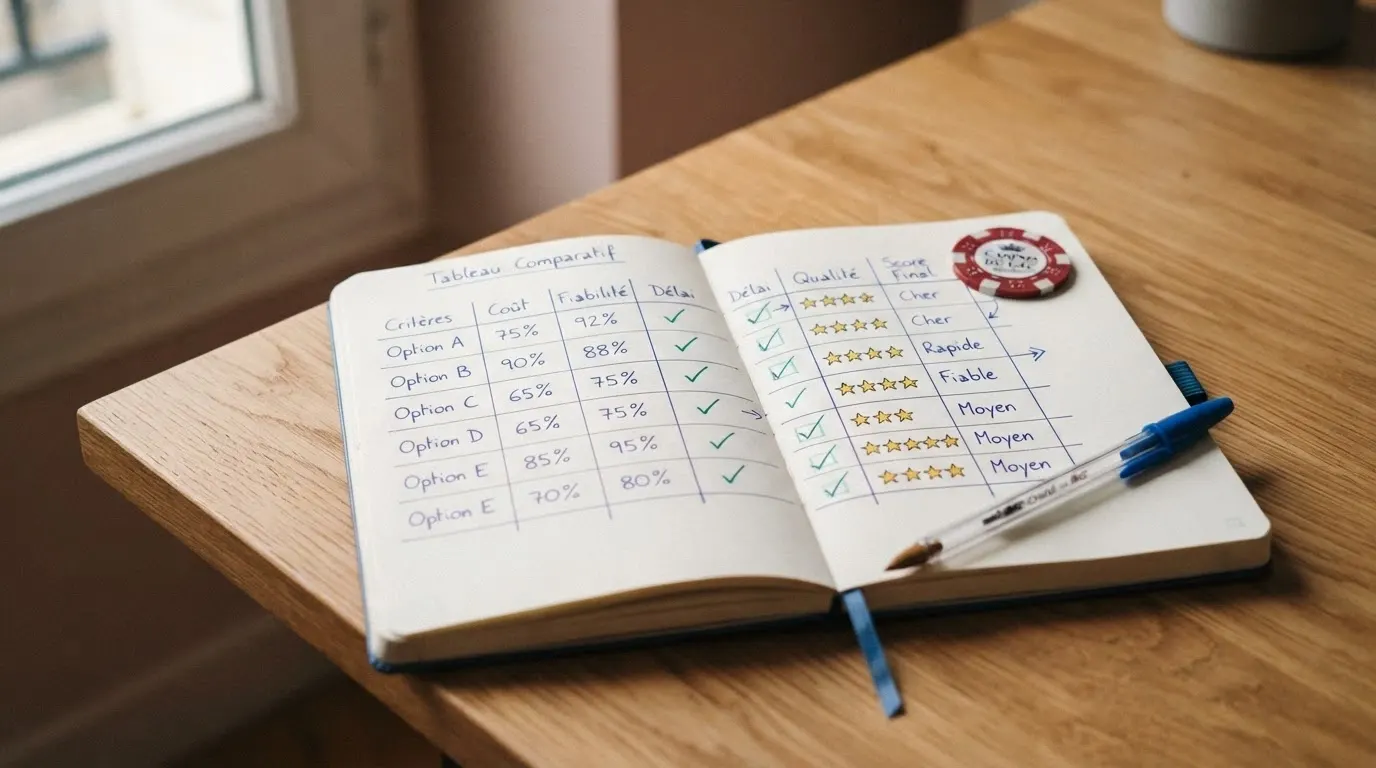 Tableau Comparatif
Critères Coût Fiabilité Délai
Option A 75% 92% ✓
Option B 90% 88% ✓
Option C 65% 75% ✓
Option D 65% 75% ✓
Option E 85% 95% ✓
Option E 70% 80% ✓
Délai Qualité Score Final
✓ → ★★★★ Cher
✓ ★★★★ Cher
✓ ★★★★ Rapide
✓ ★★★★ Fiable
✓ ★★★ Moyen
✓ ★★★★★ Moyen
✓ ★★★★ Moyen